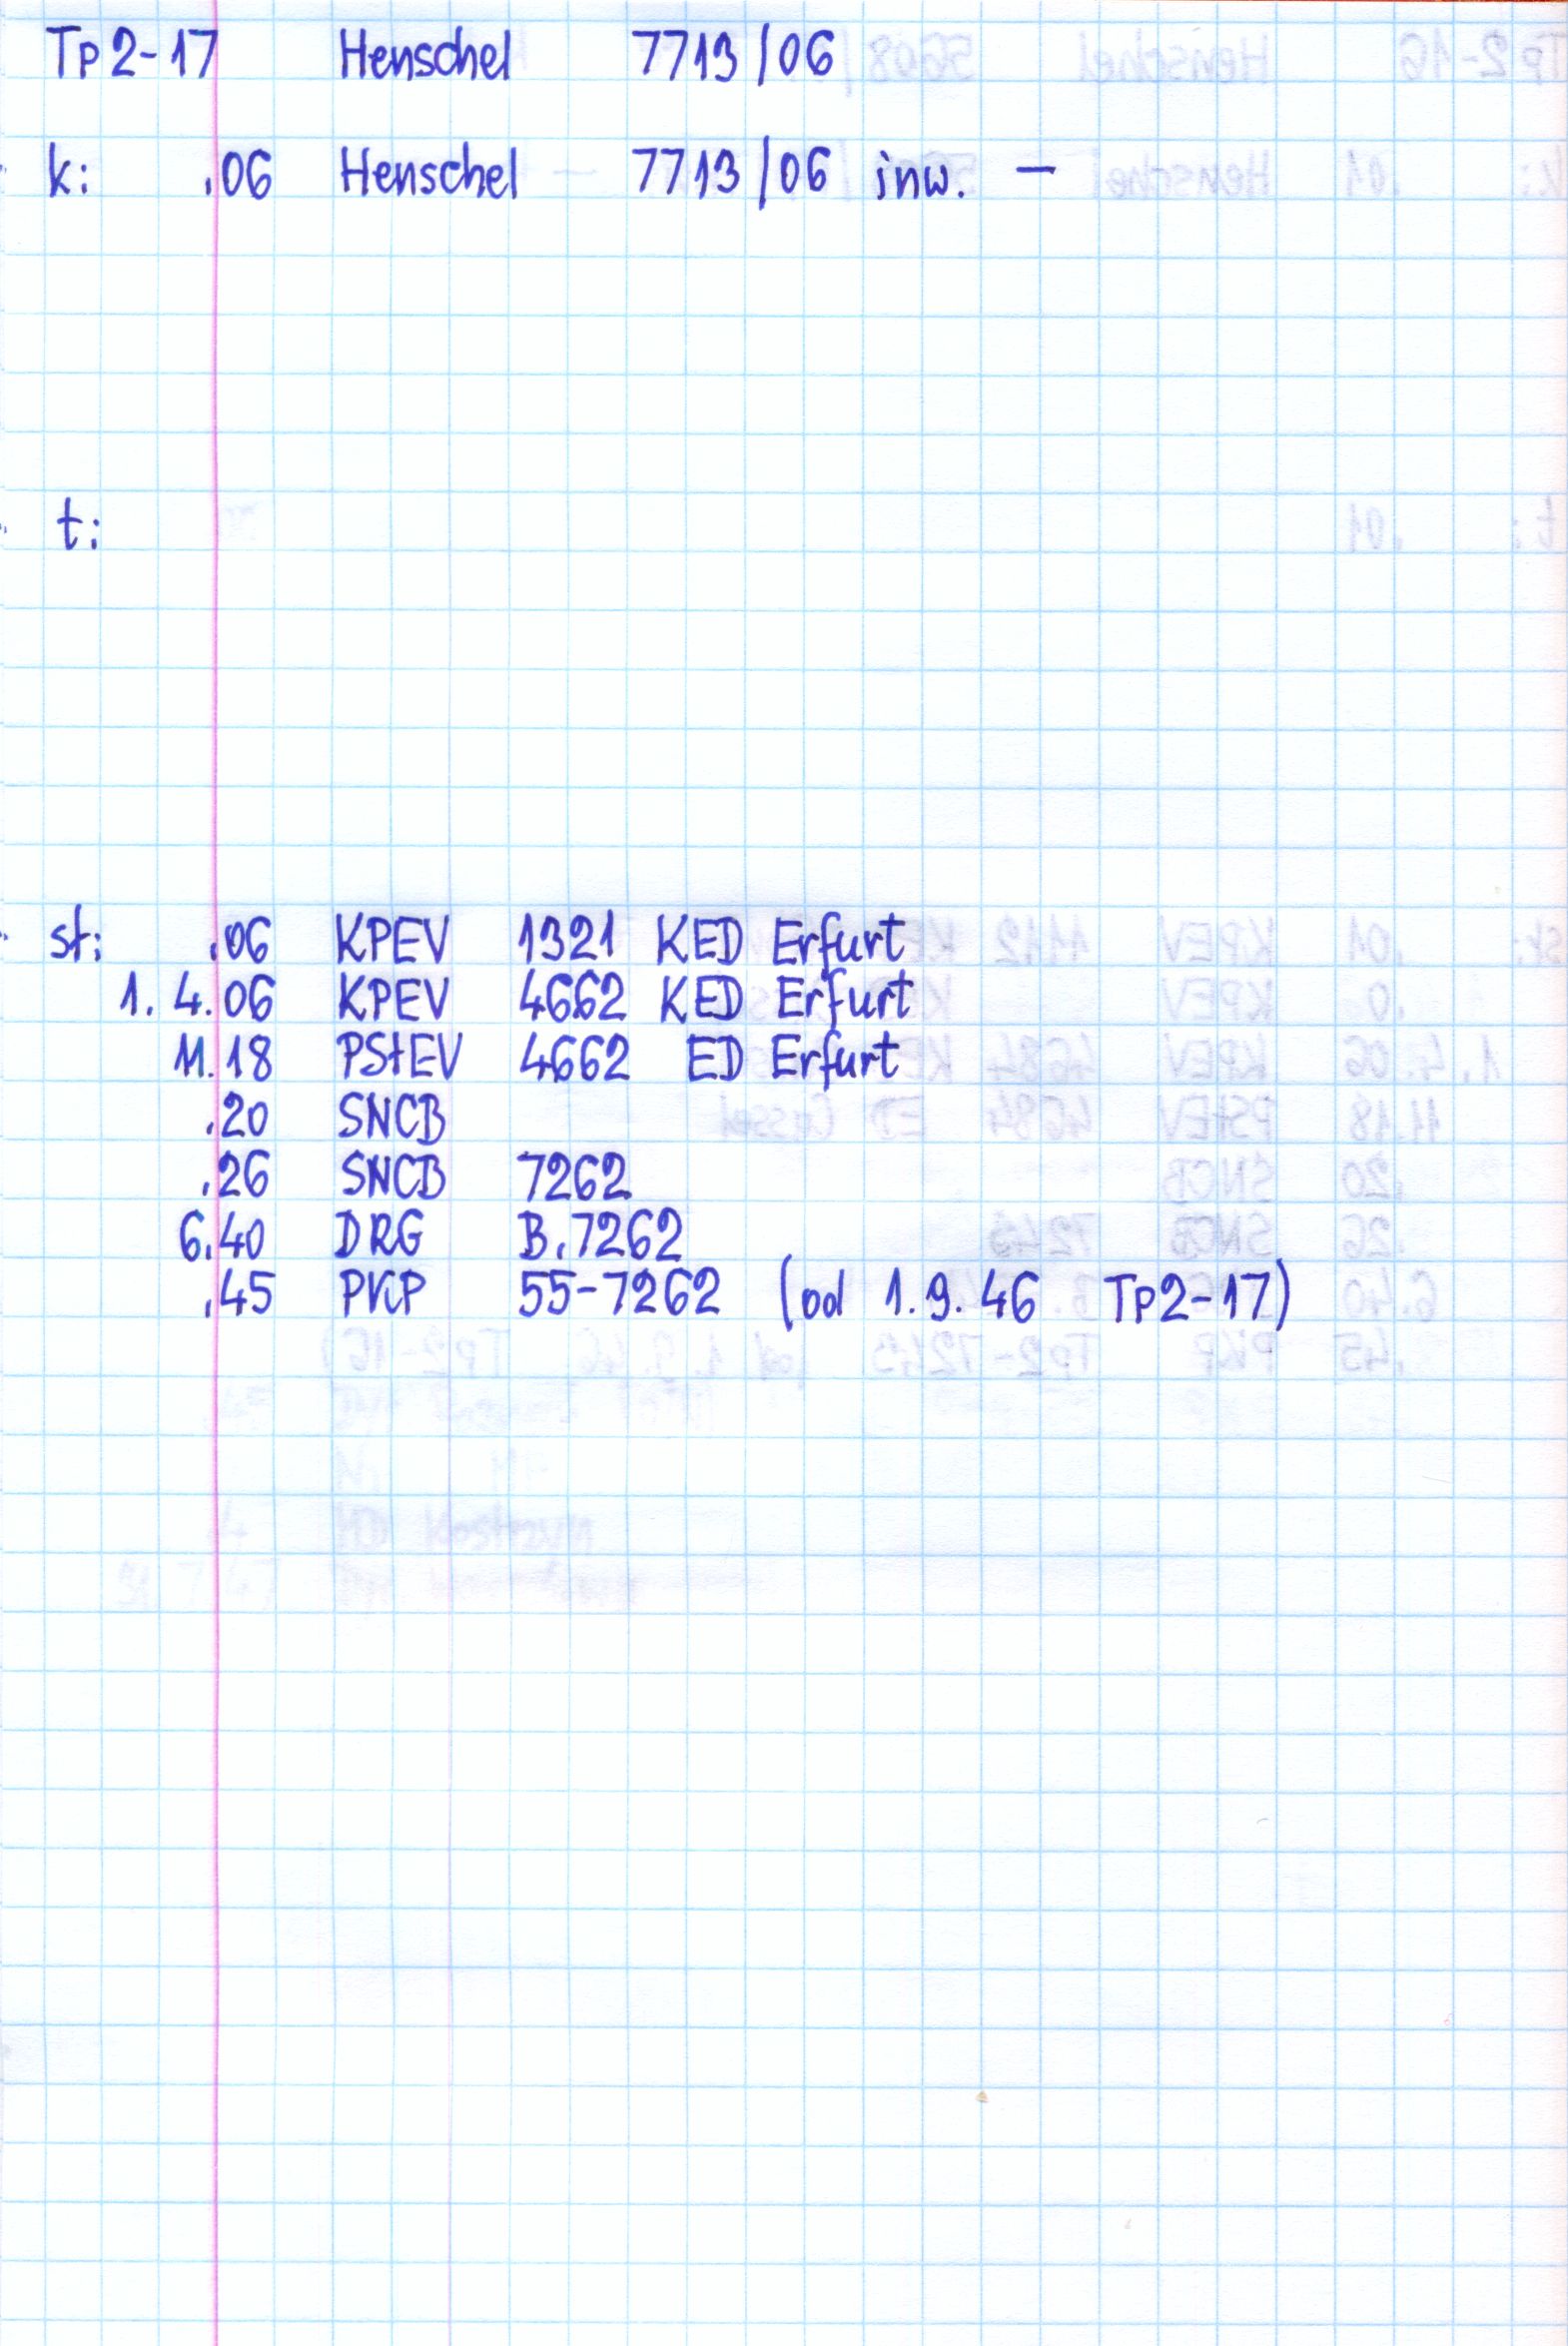 Tp2-17 Henschel 7713/06
k: .06 Henschel 7713/06 inw. —
t:
st: .06 KPEV 1321 KED Erfurt
1.4.06 KPEV 4662 KED Erfurt
11.18 PStEV 4662 ED Erfurt
.20 SNCB
.26 SNCB 7262
6.40 DRG B.7262
.45 PKP 55-7262 (od 1.9.46 Tp2-17)